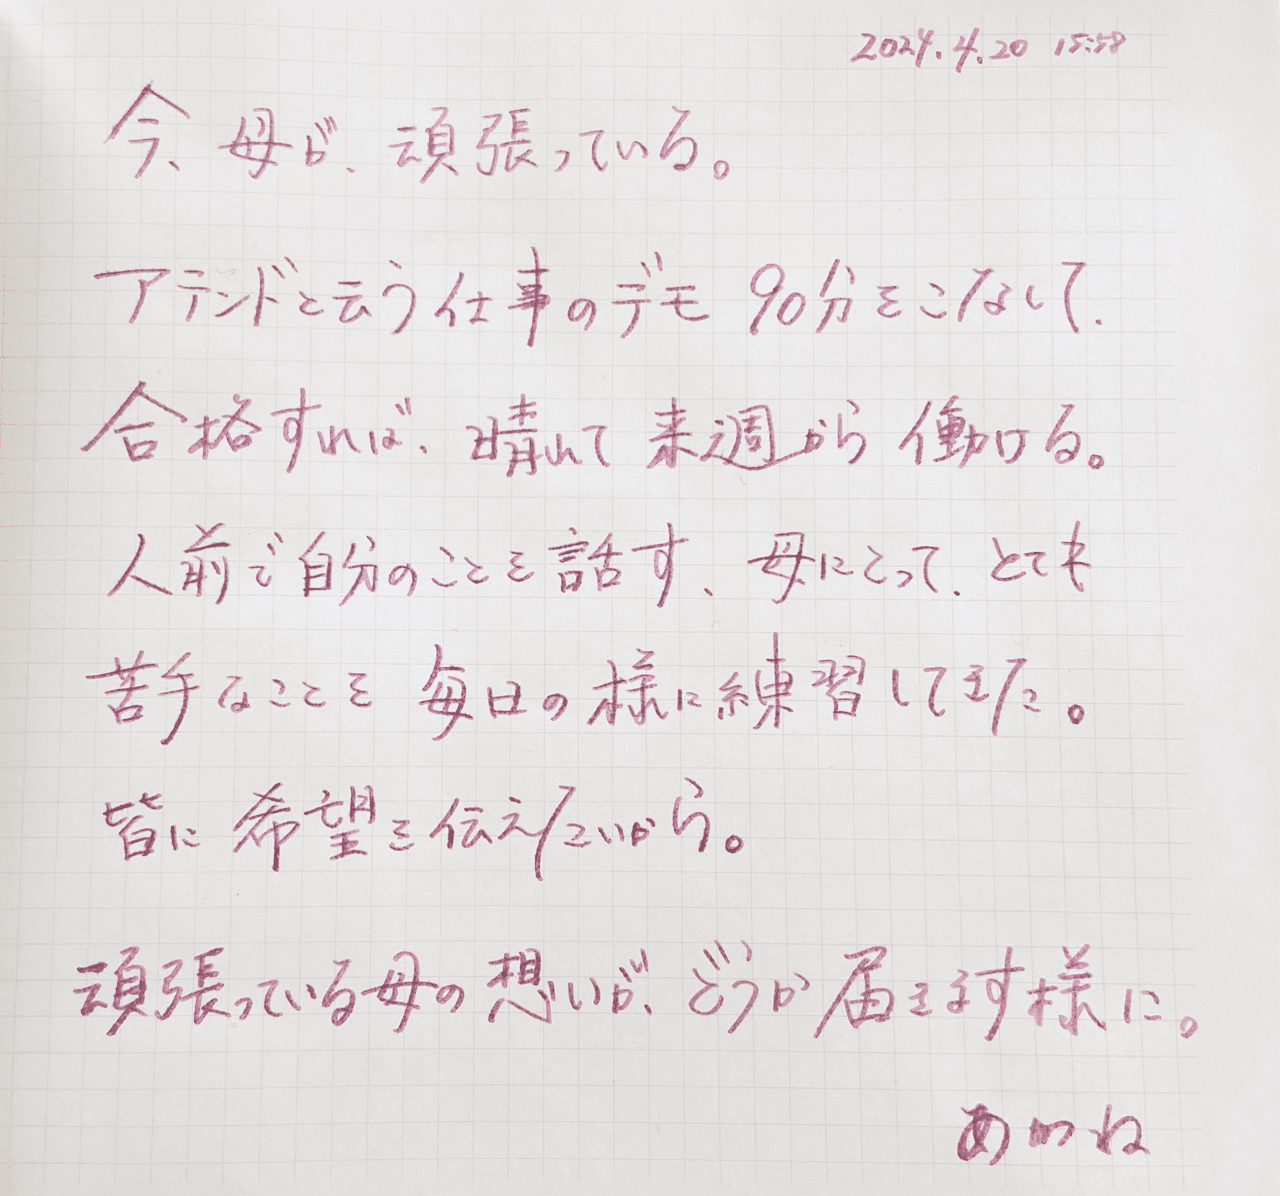 2024.4.20 15:58
今、母が、頑張っている。
アテンドと云う仕事のデモ 90分をこなして、
合格すれば、晴れて来週から働ける。
人前で自分のことを話す、母にとって、とても
苦手なことを毎日の様に練習してきた。
皆に希望を伝えたいから。
頑張っている母の想いが、どうか届きます様に。
あかね